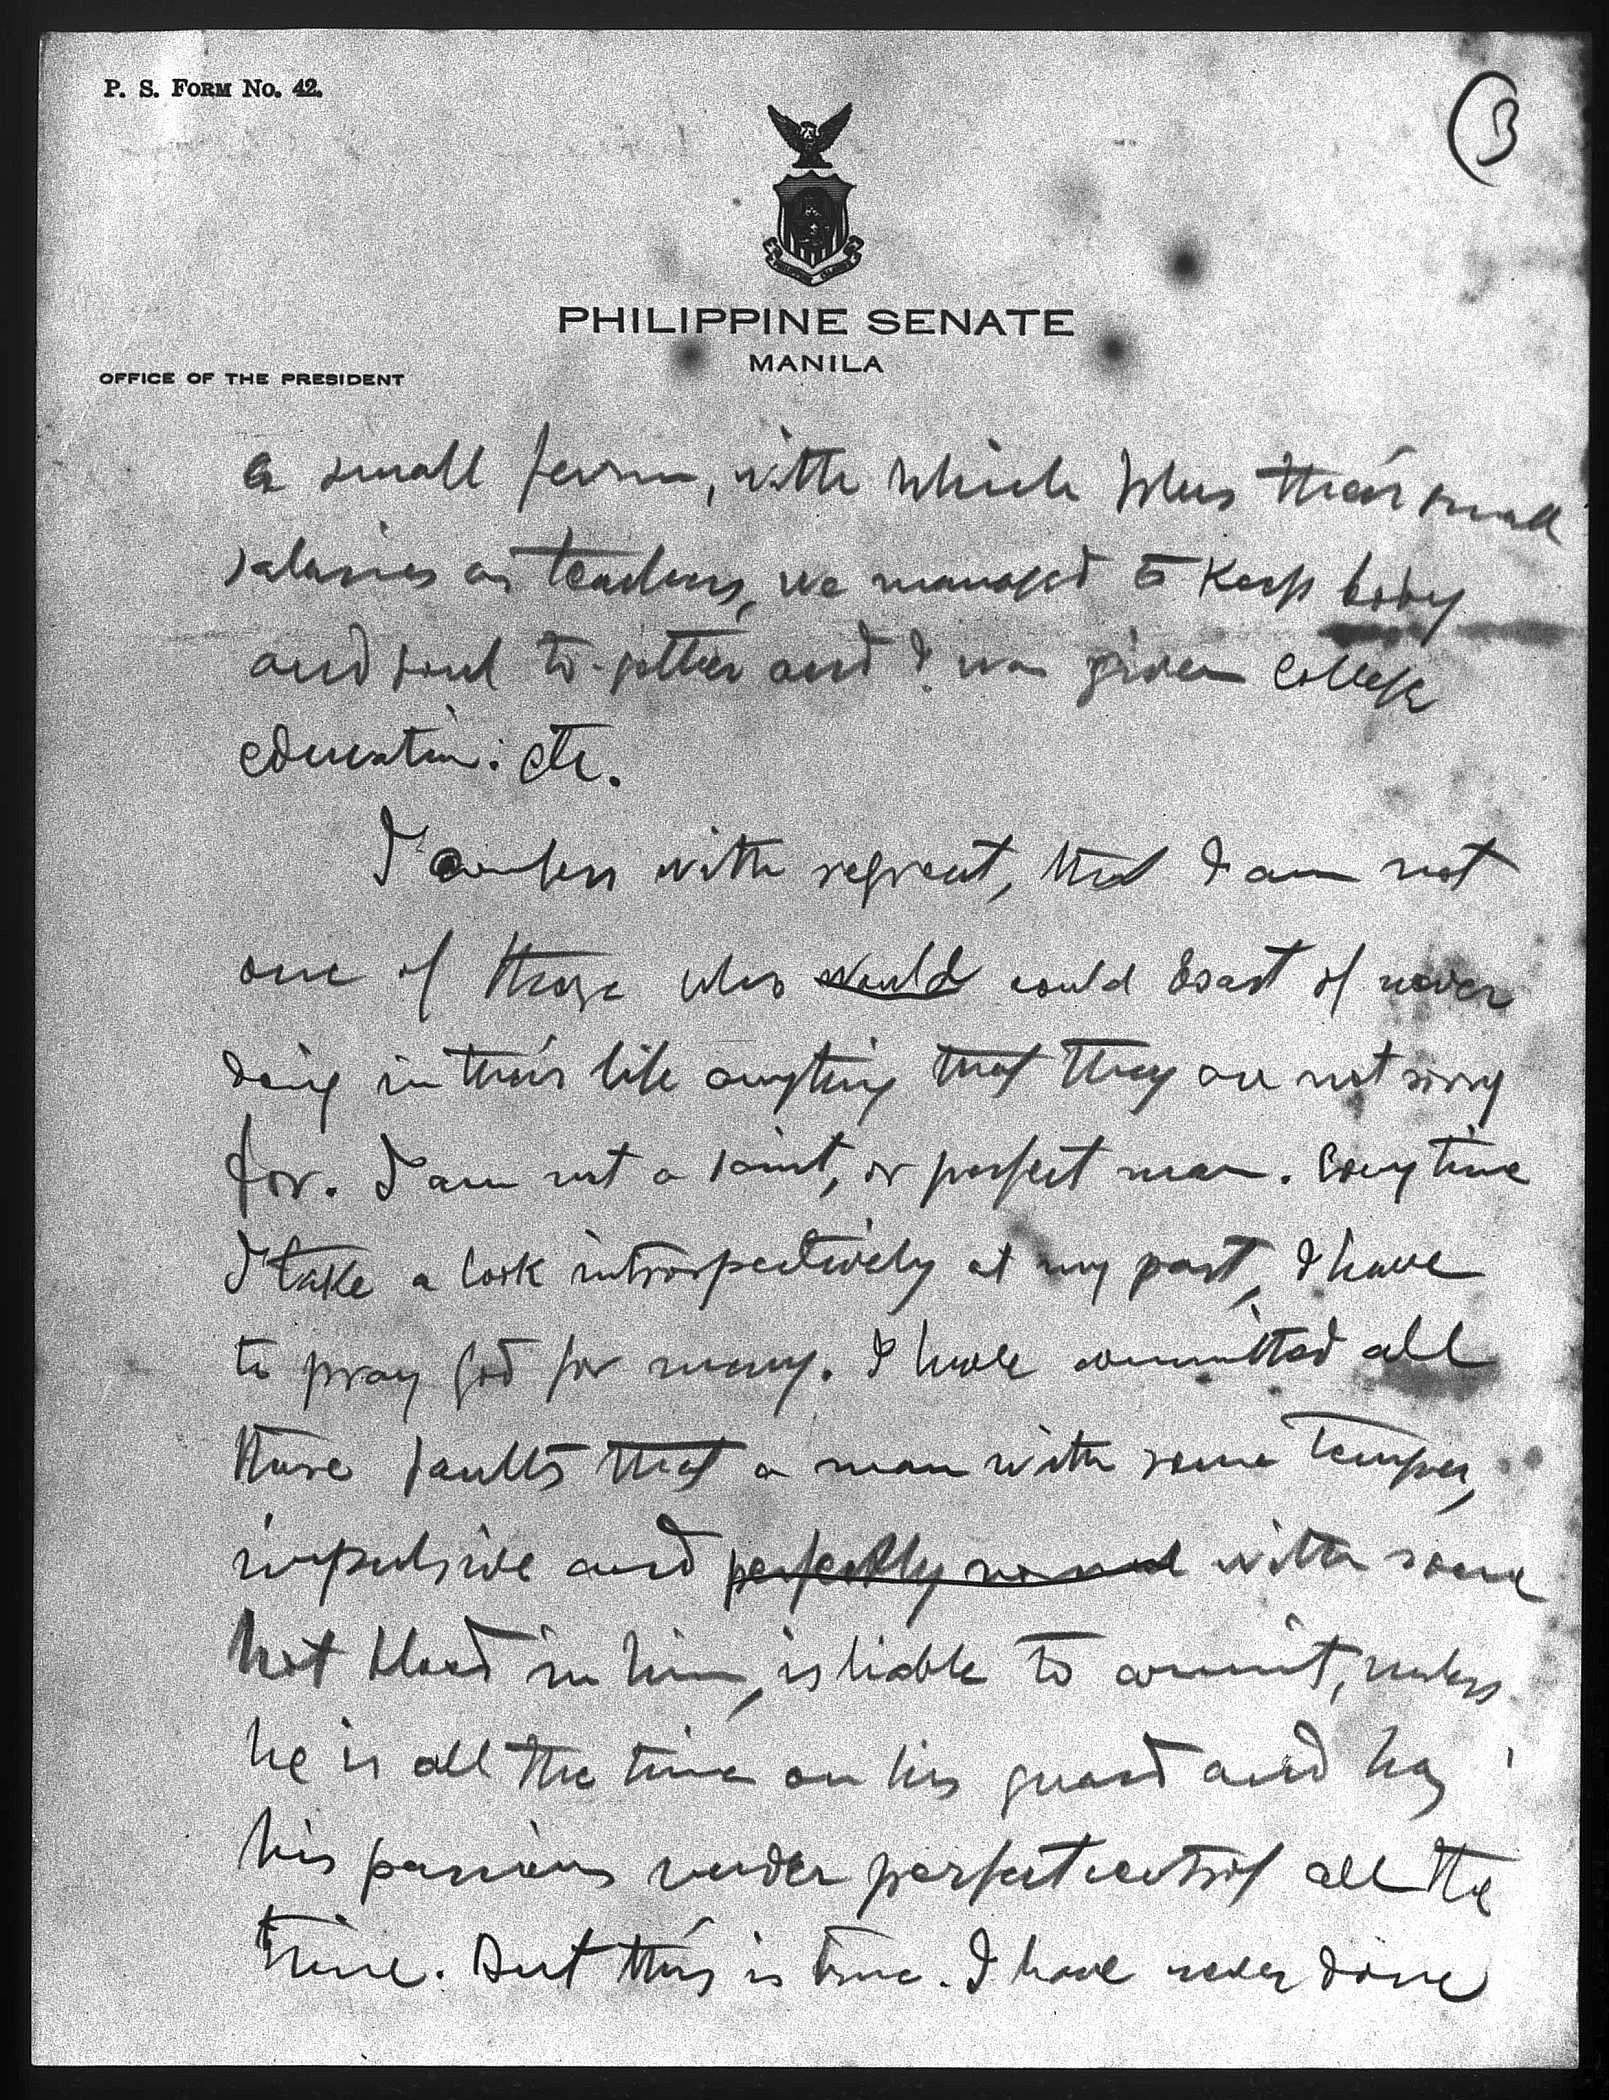 P. S. FORM No. 42.
3
PHILIPPINE SENATE
MANILA
OFFICE OF THE PRESIDENT
a small farm, with which plus their small
salaries as teachers, we managed to keep body
and soul to-gether and I was given college
education. etc.
I confess with regreat, that I am not
one of those who would could boast of never
doing in their life anything that they are not sorry
for. I am not a saint, or perfect man. Every time
I take a look introspectively at my past, I have
to pray God for mercy. I have committed all
those faults that a man with some temper,
impulsive and perfectly normal with some
hot blood in him, is liable to commit, unless
he is all the time on his guard and has
his passions under perfect control all the
time. But this is true. I have never done